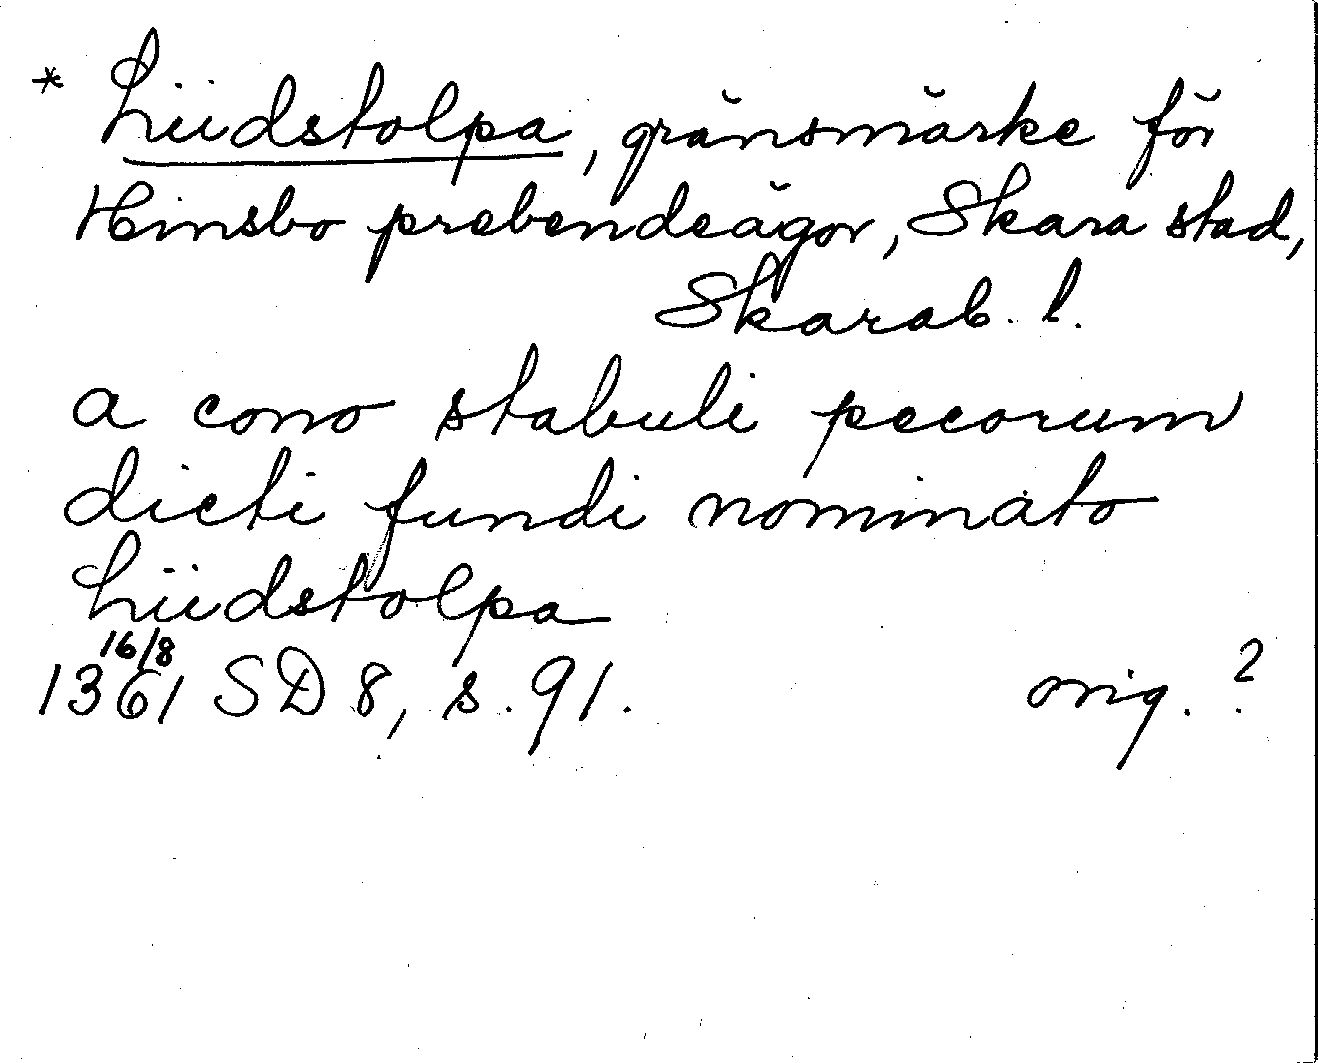 * Liidstolpa, gränsmärke för
Hinsbo prebendeägor, Skara stad,
Skarab. l.
a cono stabuli pecorum
dicti fundi nominato
Liidstolpa
1361 16/8 SD 8, s. 91. orig.?